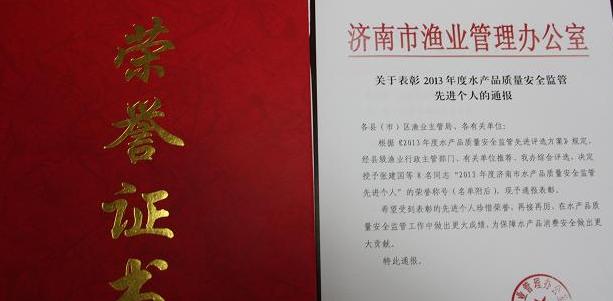 荣誉证书
济南市渔业管理办公室
关于表彰 2013 年度水产品质量安全监管
先进个人的通报
各县（市）区渔业主管局、各有关单位：
根据《2013 年度水产品质量安全监管先进评选方案》规定，
经县级渔业行政主管部门、有关单位推荐，我办综合评选，决定
授予张建国等 8 名同志“2013 年度济南市水产品质量安全监管
先进个人”的荣誉称号（名单附后），现予通报表彰。
希望受到表彰的先进个人珍惜荣誉，再接再厉，在水产品质
量安全监管工作中做出更大成绩，为保障水产品消费安全做出更
大贡献。
特此通报。
业管理办公